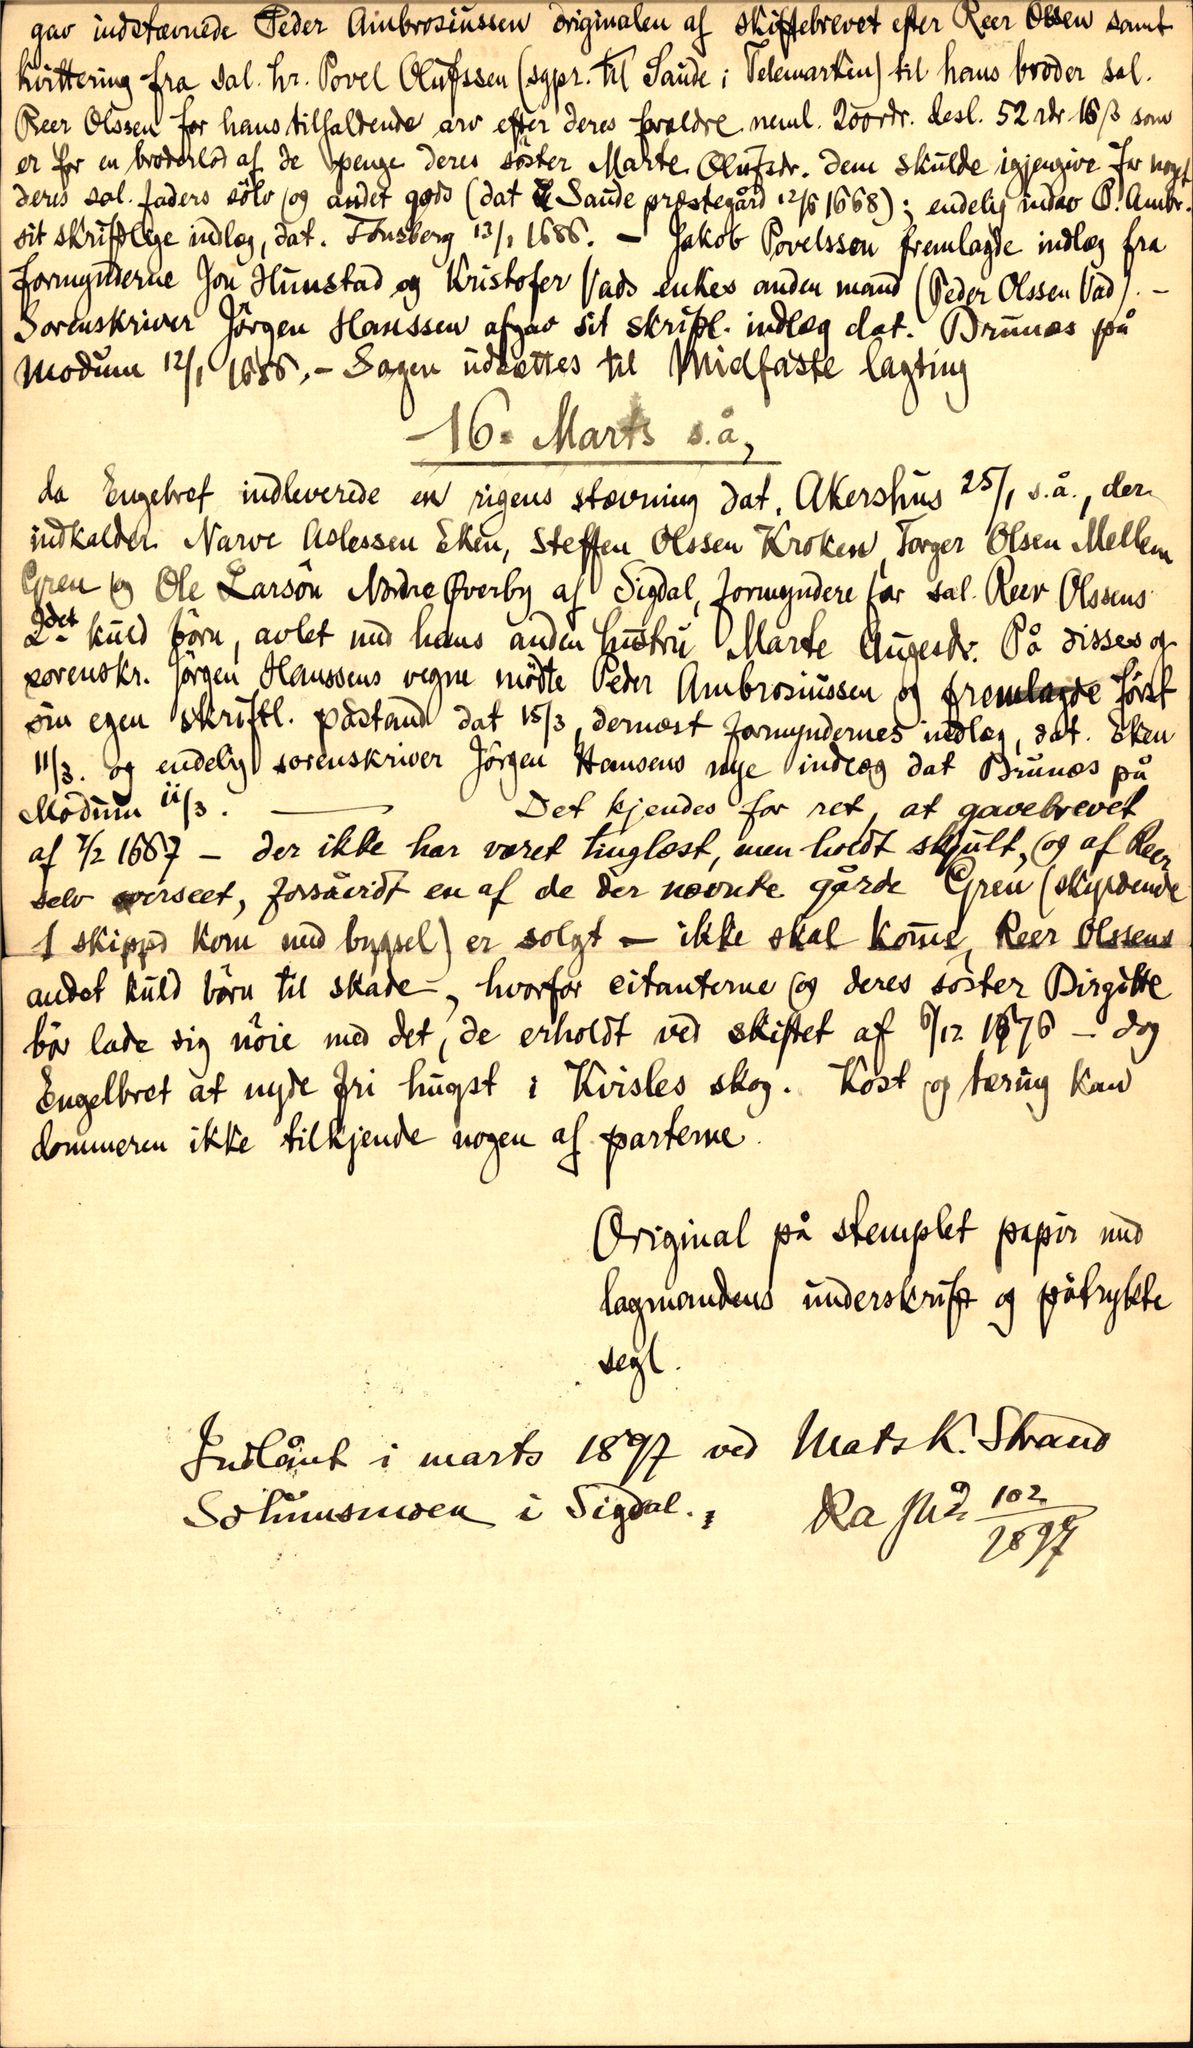 gav indstævnede Peder Ambrosiussen originalen af skiftebrevet efter Reer Olssen samt
kvittering fra sal. hr. Povel Olufssen (sgpr. til Saude i Telemarken) til hans broder sal.
Reer Olssen for hans tilfaldende arv efter deres forældre neml. 200 rdr. desl. 52 rdr 16 β som
er for en broderlod af de penge deres söster Marte Olufsdr. dem skulde igjengive for noget
deres sal. faders sölv og andet gods (dat Saude præstegård 12/5 1668); endelig indgav P. Ambr.
sit skriftlige indlæg, dat. Tönsberg 13/1 1686. – Jakob Povelssen fremlagde indlæg fra
formynderne Jon Hunstad og Kristofer Vads enkes anden mand (Peder Olssen Vad). –
Sorenskriver Jörgen Hanssen afgav sit skriftl. indlæg dat. Brunæs på
Modum 12/1 1686. – Sagen udsættes til Midfaste lagting
16. Marts s.å,
da Engebret indleverede en rigens stævning dat. Akershus 25/1 s.å., der
indkalder Narve Aslessen Eken, Steffen Olssen Kroken, Torger Olsen Mellem
Gren og Ole Larsön Nordre Øverby af Sigdal, formyndere for sal. Reer Olssens
2det kuld börn, avlet med hans anden hustru Marte Augestr. På disses og
sorenskr. Jörgen Hanssens vegne mödte Peder Ambrosiussen og fremlagde först
sin egen skriftl. påstand dat 15/3, dernæst formyndernes indlæg, dat. Eken
11/3. og endelig sorenskriver Jörgen Hansens nye indlæg dat Brunæs på
Modum 11/3. — Det kjendes for ret, at gavebrevet
af 7/2 1667 – der ikke har været tinglæst, men holdt skjult, og af Reer
selv overseet, forsåvidt en af de der nævnte gårde Gren (skyldende
1 skippd korn med bygsel) er solgt – ikke skal komme Reer Olssens
andet kuld börn til skade –, hvorfor citanterne og deres söster Birgitte
bör lade sig nöie med det, de erholdt ved skiftet af 6/12 1676 – dog
Engelbret at nyde fri hugst i Kvisles skog. Kost og tæring kan
dommeren ikke tilkjende nogen af parterne.
Original på stemplet papir med
lagmandens underskrift og påtrykte
segl.
Indlånt i marts 1897 ved Mats K. Strand
Solumsmoen i Sigdal.
102
1897